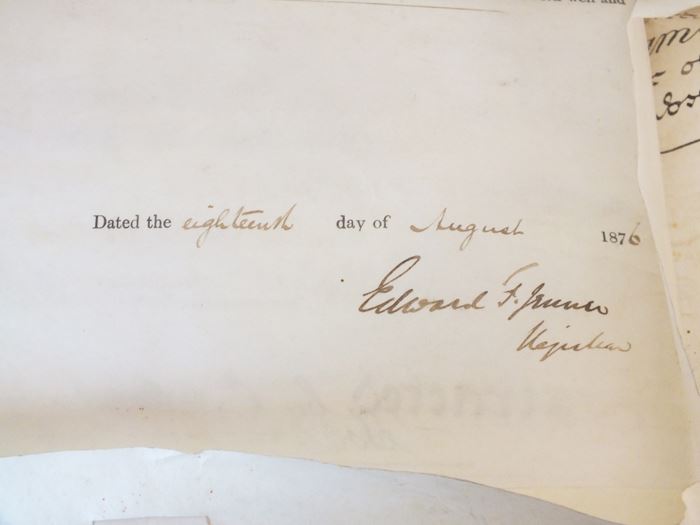 well and
Dated the eighteenth day of August 1876
Edward F. Jenner
Registrar